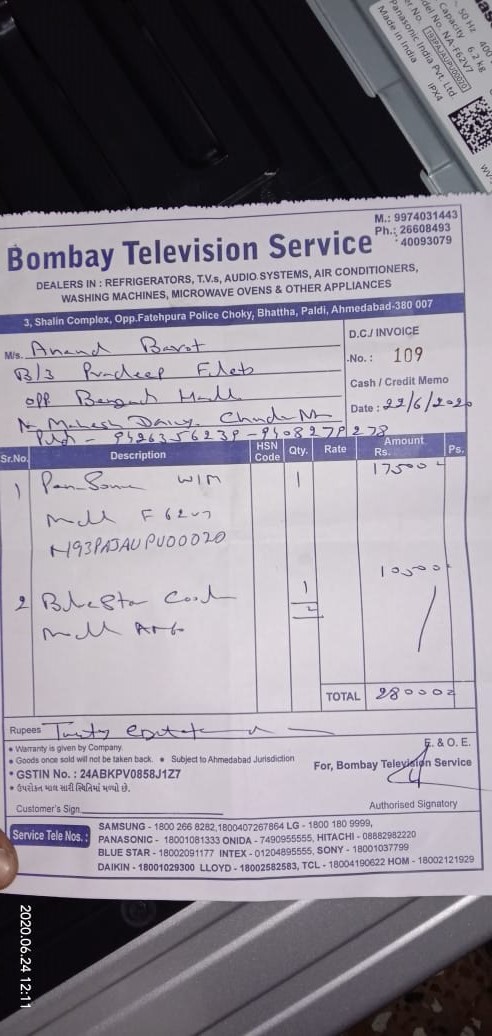 50 Hz 400
Capacity 6.2 kg
Model No. NA-F62V7
193PAJAUPU00020
Panasonic India Pvt. Ltd.
Made in India IPX4
M.: 9974031443
Ph.: 26608493
40093079
Bombay Television Service
DEALERS IN : REFRIGERATORS, T.V.s, AUDIO SYSTEMS, AIR CONDITIONERS,
WASHING MACHINES, MICROWAVE OVENS & OTHER APPLIANCES
3, Shalin Complex, Opp.Fatehpura Police Choky, Bhattha, Paldi, Ahmedabad-380 007
D.C./ INVOICE
M/s. Anand Barot
No. : 109
B/3 Pradeep Flats
Cash / Credit Memo
opp Bengali Hall
Date : 22/6/2020
Nr Mahesh Dairy,
Sr.No. Description HSN Code Qty. Rate Amount Rs. Ps.
1 W/M 1 17500
F62V7
N193PAJAUPU00020
10500
2 BlueStar 1
2
TOTAL 28000
Rupees Twenty
E. & O. E.
• Warranty is given by Company.
• Goods once sold will not be taken back. • Subject to Ahmedabad Jurisdiction
For, Bombay Television Service
* GSTIN No. : 24ABKPV0858J1Z7
• ઉપરોક્ત માલ સારી સ્થિતિમાં મળ્યો છે.
Customer's Sign
Authorised Signatory
Service Tele Nos. :
SAMSUNG - 1800 266 8282,1800407267864 LG - 1800 180 9999,
PANASONIC - 18001081333 ONIDA - 7490955555, HITACHI - 08882982220
BLUE STAR - 18002091177 INTEX - 01204895555, SONY - 18001037799
DAIKIN - 18001029300 LLOYD - 18002582583, TCL - 18004190622 HOM - 18002121929
2020.06.24 12:11